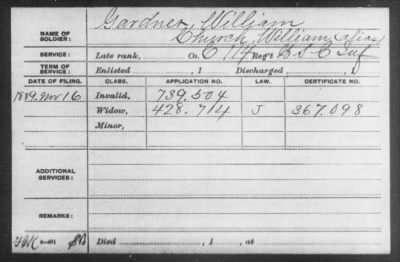 Gardner, William
NAME OF SOLDIER: Church, William, alias
SERVICE: Late rank, Co. C 114 Reg't U S C Inf
TERM OF SERVICE: Enlisted , 1 Discharged , 1
DATE OF FILING. CLASS. APPLICATION NO. LAW. CERTIFICATE NO.
1889 Nov 16 Invalid, 739.504
Widow, 428.714 J 367.098
Minor,
ADDITIONAL SERVICES:
REMARKS:
Died , 1 , at